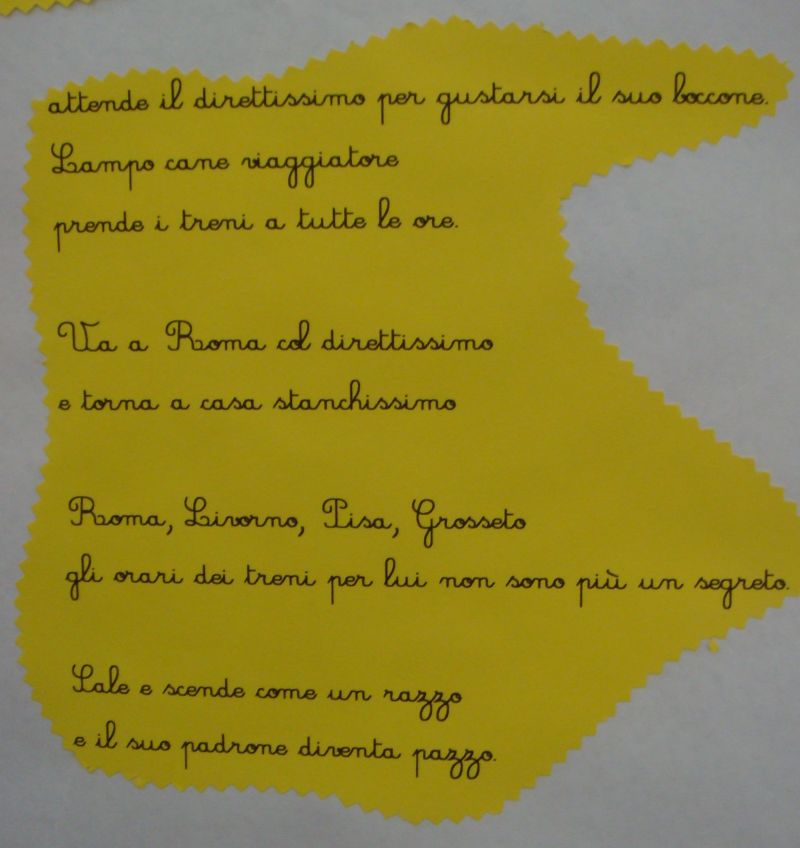 attende il direttissimo per gustarsi il suo boccone.
Lampo cane viaggiatore
prende i treni a tutte le ore.
Va a Roma col direttissimo
e torna a casa stanchissimo
Roma, Livorno, Pisa, Grosseto
gli orari dei treni per lui non sono più un segreto.
Sale e scende come un razzo
e il suo padrone diventa pazzo.